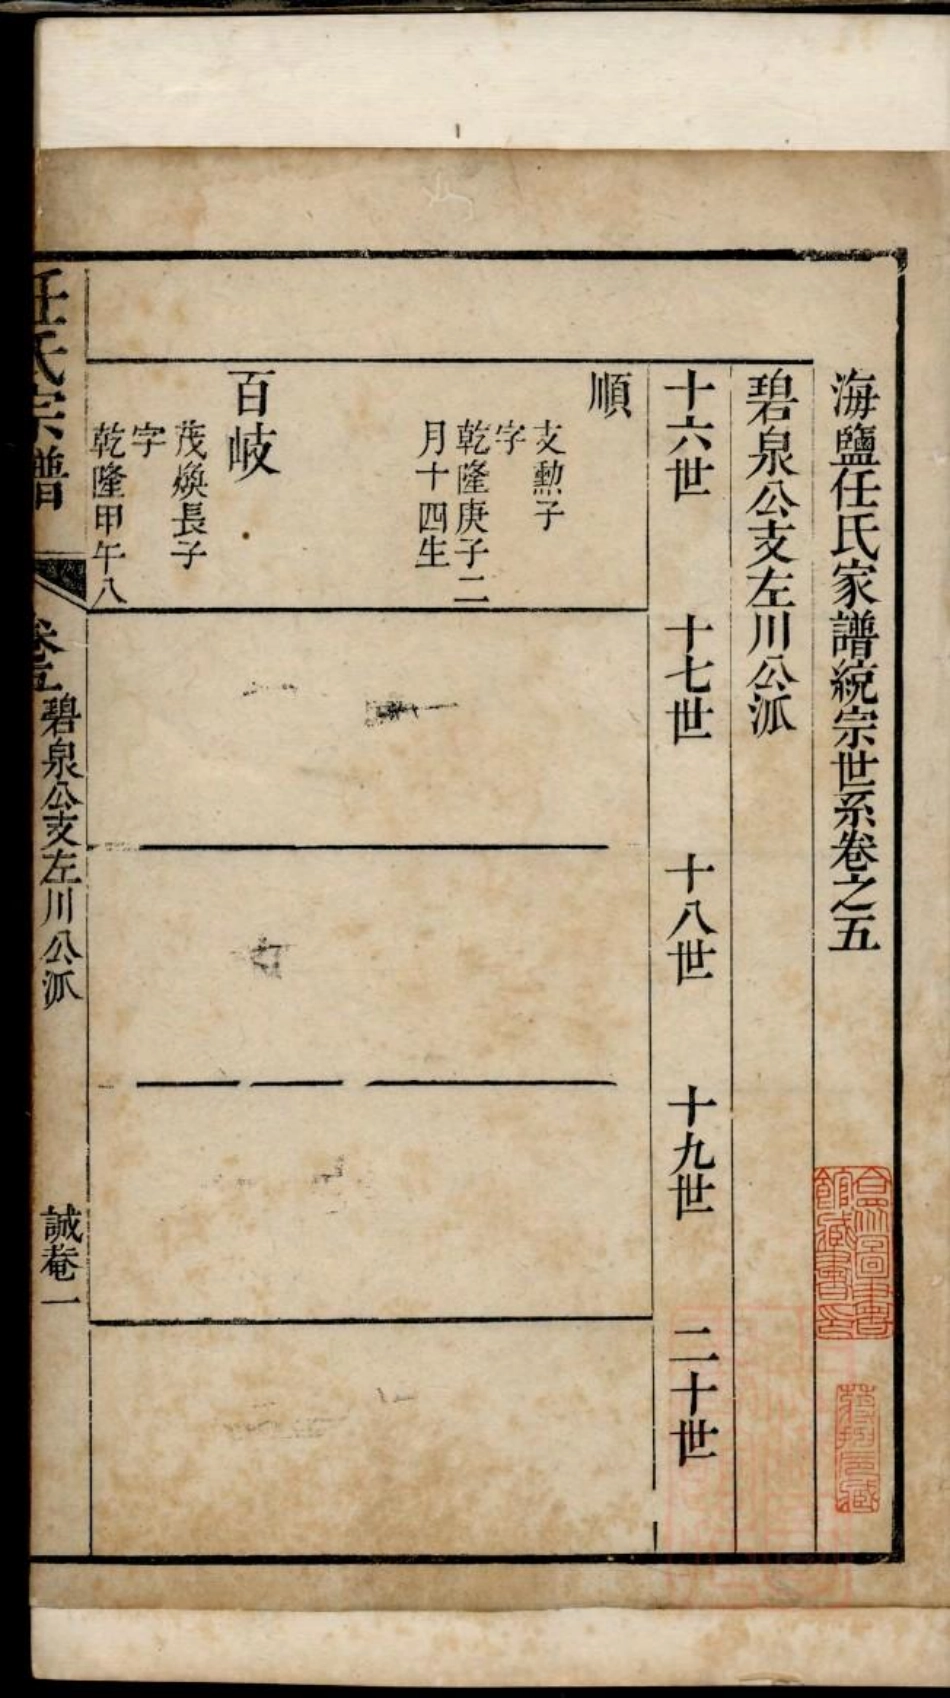 海鹽任氏家譜統宗世系卷之五
碧泉公支左川公派
十六世
十七世
十八世
十九世
二十世
順
支勲子
字
乾隆庚子二
月十四生
百岐
茂煥長子
字
乾隆甲午八
任氏宗譜
卷五
碧泉公支左川公派
誠菴一